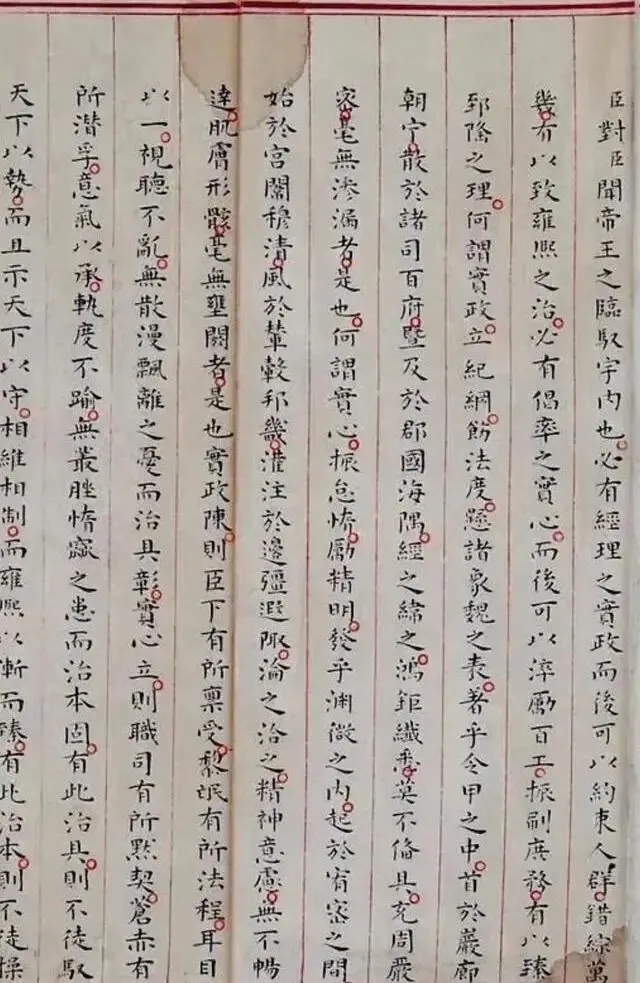 臣對臣聞帝王之臨馭宇內也必有經理之實政而後可以約束人群錯綜萬
幾有以致雍熙之治必有倡率之實心而後可以淬勵百工振刷庶務有以臻
郅隆之理何謂實政立紀綱飭法度懸諸象魏之表著乎令甲之中首於巖廊
朝宁散於諸司百府暨及於郡國海隅經之緯之鴻鉅纖悉莫不備具充周嚴
密毫無滲漏者是也何謂實心振怠惰勵精明發乎淵微之內起於宥密之間
始於宮闈穆清風於輦轂邦畿灌注於邊疆遐陬淪之洽之精神意慮無不暢
達肌膚形骸毫無壅閼者是也實政陳則臣下有所稟受黎氓有所法程耳目
以一視聽不亂無散漫飄離之憂而治具彰實心立則職司有所默契蒼赤有
所潛孚意氣以承軌度不踰無叢脞惰窳之患而治本固有此治具則不徒馭
天下以勢而且示天下以守相維相制而雍熙以漸而臻有此治本則不徒操